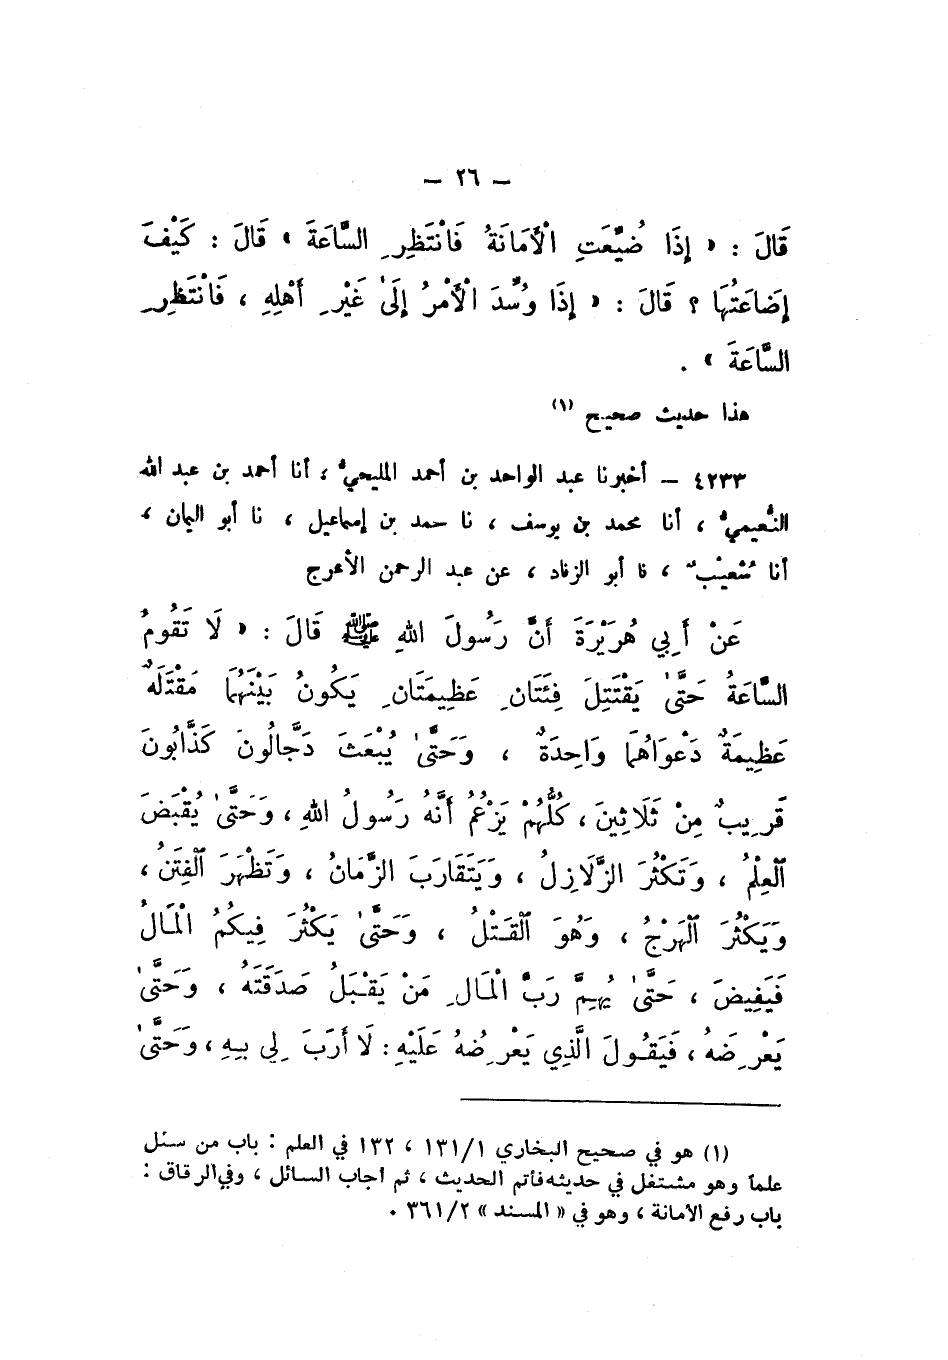 – ٢٦ –
قَالَ : « إِذَا ضُيِّعَتِ الْأَمَانَةُ فَانْتَظِرِ السَّاعَةَ » قَالَ : كَيْفَ
إِضَاعَتُهَا ؟ قَالَ : « إِذَا وُسِّدَ الْأَمْرُ إِلَىٰ غَيْرِ أَهْلِهِ ، فَانْتَظِرِ
السَّاعَةَ » .
هذا حديث صحيح (١)
٤٢٣٣ – أخبرنا عبد الواحد بن أحمد المليحيُّ ، أنا أحمد بن عبد الله
النُّعيميُّ ، أنا محمد بن يوسف ، نا حمد بن إسماعيل ، نا أبو اليمان ،
أنا شُعيبٌ ، نا أبو الزناد ، عن عبد الرحمن الأعرج
عَنْ أَبِي هُرَيْرَةَ أَنَّ رَسُولَ اللهِ ﷺ قَالَ : « لَا تَقُومُ
السَّاعَةُ حَتَّىٰ يَقْتَتِلَ فِئَتَانِ عَظِيمَتَانِ يَكُونُ بَيْنَهُمَا مَقْتَلَةٌ
عَظِيمَةٌ دَعْوَاهُمَا وَاحِدَةٌ ، وَحَتَّىٰ يُبْعَثَ دَجَّالُونَ كَذَّابُونَ
قَرِيبٌ مِنْ ثَلَاثِينَ ، كُلُّهُمْ يَزْعُمُ أَنَّهُ رَسُولُ اللهِ ، وَحَتَّىٰ يُقْبَضَ
الْعِلْمُ ، وَتَكْثُرَ الزَّلَازِلُ ، وَيَتَقَارَبَ الزَّمَانُ ، وَتَظْهَرَ الْفِتَنُ ،
وَيَكْثُرَ الْهَرْجُ ، وَهُوَ الْقَتْلُ ، وَحَتَّىٰ يَكْثُرَ فِيكُمُ الْمَالُ
فَيَفِيضَ ، حَتَّىٰ يُهِمَّ رَبَّ الْمَالِ مَنْ يَقْبَلُ صَدَقَتَهُ ، وَحَتَّىٰ
يَعْرِضَهُ ، فَيَقُولَ الَّذِي يَعْرِضُهُ عَلَيْهِ : لَا أَرَبَ لِي بِهِ ، وَحَتَّىٰ
(١) هو في صحيح البخاري ١٣١/١ ، ١٣٢ في العلم : باب من سئل
علماً وهو مشتغل في حديثه فأتم الحديث ، ثم أجاب السائل ، وفي الرقاق :
باب رفع الأمانة ، وهو في « المسند » ٣٦١/٢ .